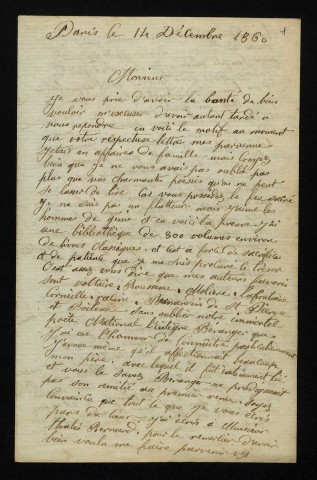 Paris le 14 Décembre 1860
Monsieur
Je vous prie d'avoir la bonté de bien
vouloir m'excuser d'avoir autant tardé a
vous repondre en voici le motif au moment
que votre respectueuse lettre mes parvenue
j'étais en affaires de famille mais croyez
bien que je ne vous avais pas oublié pas
plus que vos charmante poésies qu'on ne peut
se lasser de lire car vous possédez le feu sacré
Je ne suis pas un flatteur mais j'aime les
hommes de génie et en voici la preuve j'ai
une bibliothèque de 800 volumes environ
de livres classiques et c'est a force de sacrifice
et de patiente que je me suis procuré ce trésor
C'est assez vous dire que mes auteurs favoris
sont voltaire, Rousseau, Molière, Lafontaine
Corneille, racine, Bernardin de St Pierre
et Boileau sans oublier notre immortel
poète National l'intègre Béranger que
j'ai eu l'honneur de connaitre particulièrement
j'avoue même qu'il affectionnait beaucoup
mon père, avec lequel il fut intimement lié
et vous le savez Béranger ne prodiguait
pas son amitié au premier venu. Soyez
convaincu que tout ce que je vous écris
pars de cœur j'ai écris a Monsieur
Thalès Bernard pour le remercier d'avoir
bien voulu me faire parvenir vos